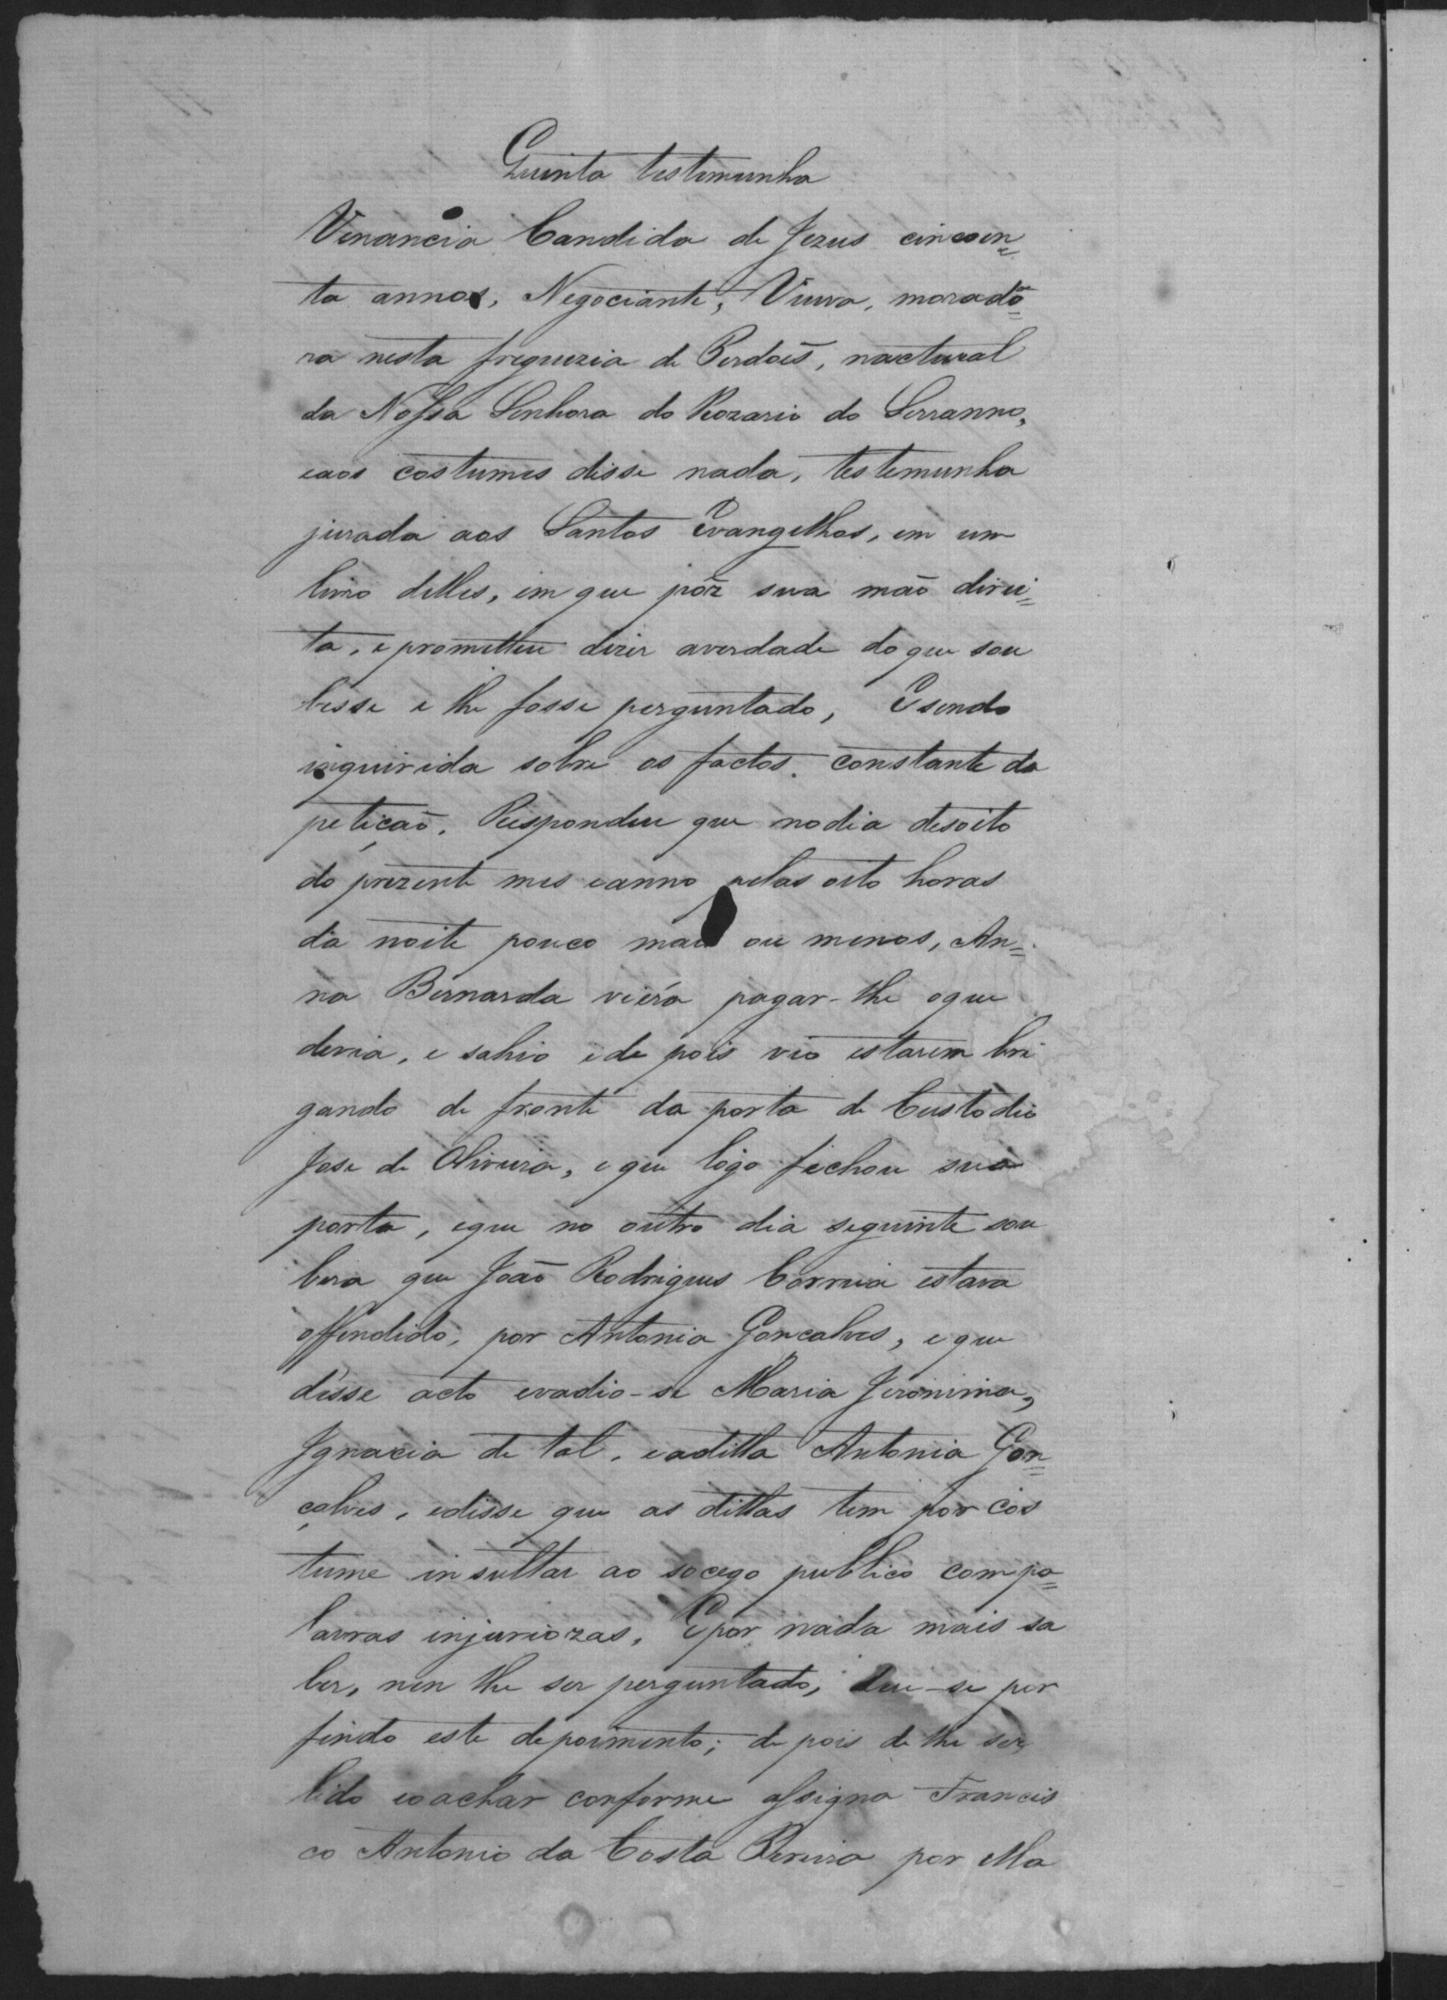 Quinta testimunha
Venancia Candida de Jezus cincoen=
ta annos, Negociante, Viuva, morado=
ra nesta freguezia de Perdões, nactural
da Nossa Senhora do Rozario do Serranno,
eaos costumes disse nada, testemunha
jurada aos Santos Evangelhos, em um
livro delles, em que pôz sua mão direi=
ta, e prometteu dizer averdade do que sou
besse e lhe fosse perguntado, E sendo
inquirida sobre os factos constante da
petição. Respondeu que nodia desoito
do prezente mes eanno pelas oito horas
da noite pouco mais ou menos, An=
na Bernarda viéra pagar-lhe oque
devia, e sahio e de pois vio estarem bri
gando de fronte da porta de Custodio
Jose de Oliveira, e que logo fichou sua
porta, eque no outro dia seguinte sou
bera que João Rodrigues Correia estava
offendido, por Antonia Goncalves, e que
désse acto evadio-se Maria Jeronima,
Ignacia de tal, eaditta Antonia Gon=
çalves, edisse que as dittas tem por cos
tume insultar ao socego publico com pa=
lavras injuriozas, E por nada mais sa
ber, nen lhe ser perguntado, deu-se por
findo este depoimento; de pois de lhe ser
lido eoachar conforme assigna Francis
co Antonio da Costa Pereira por Ma